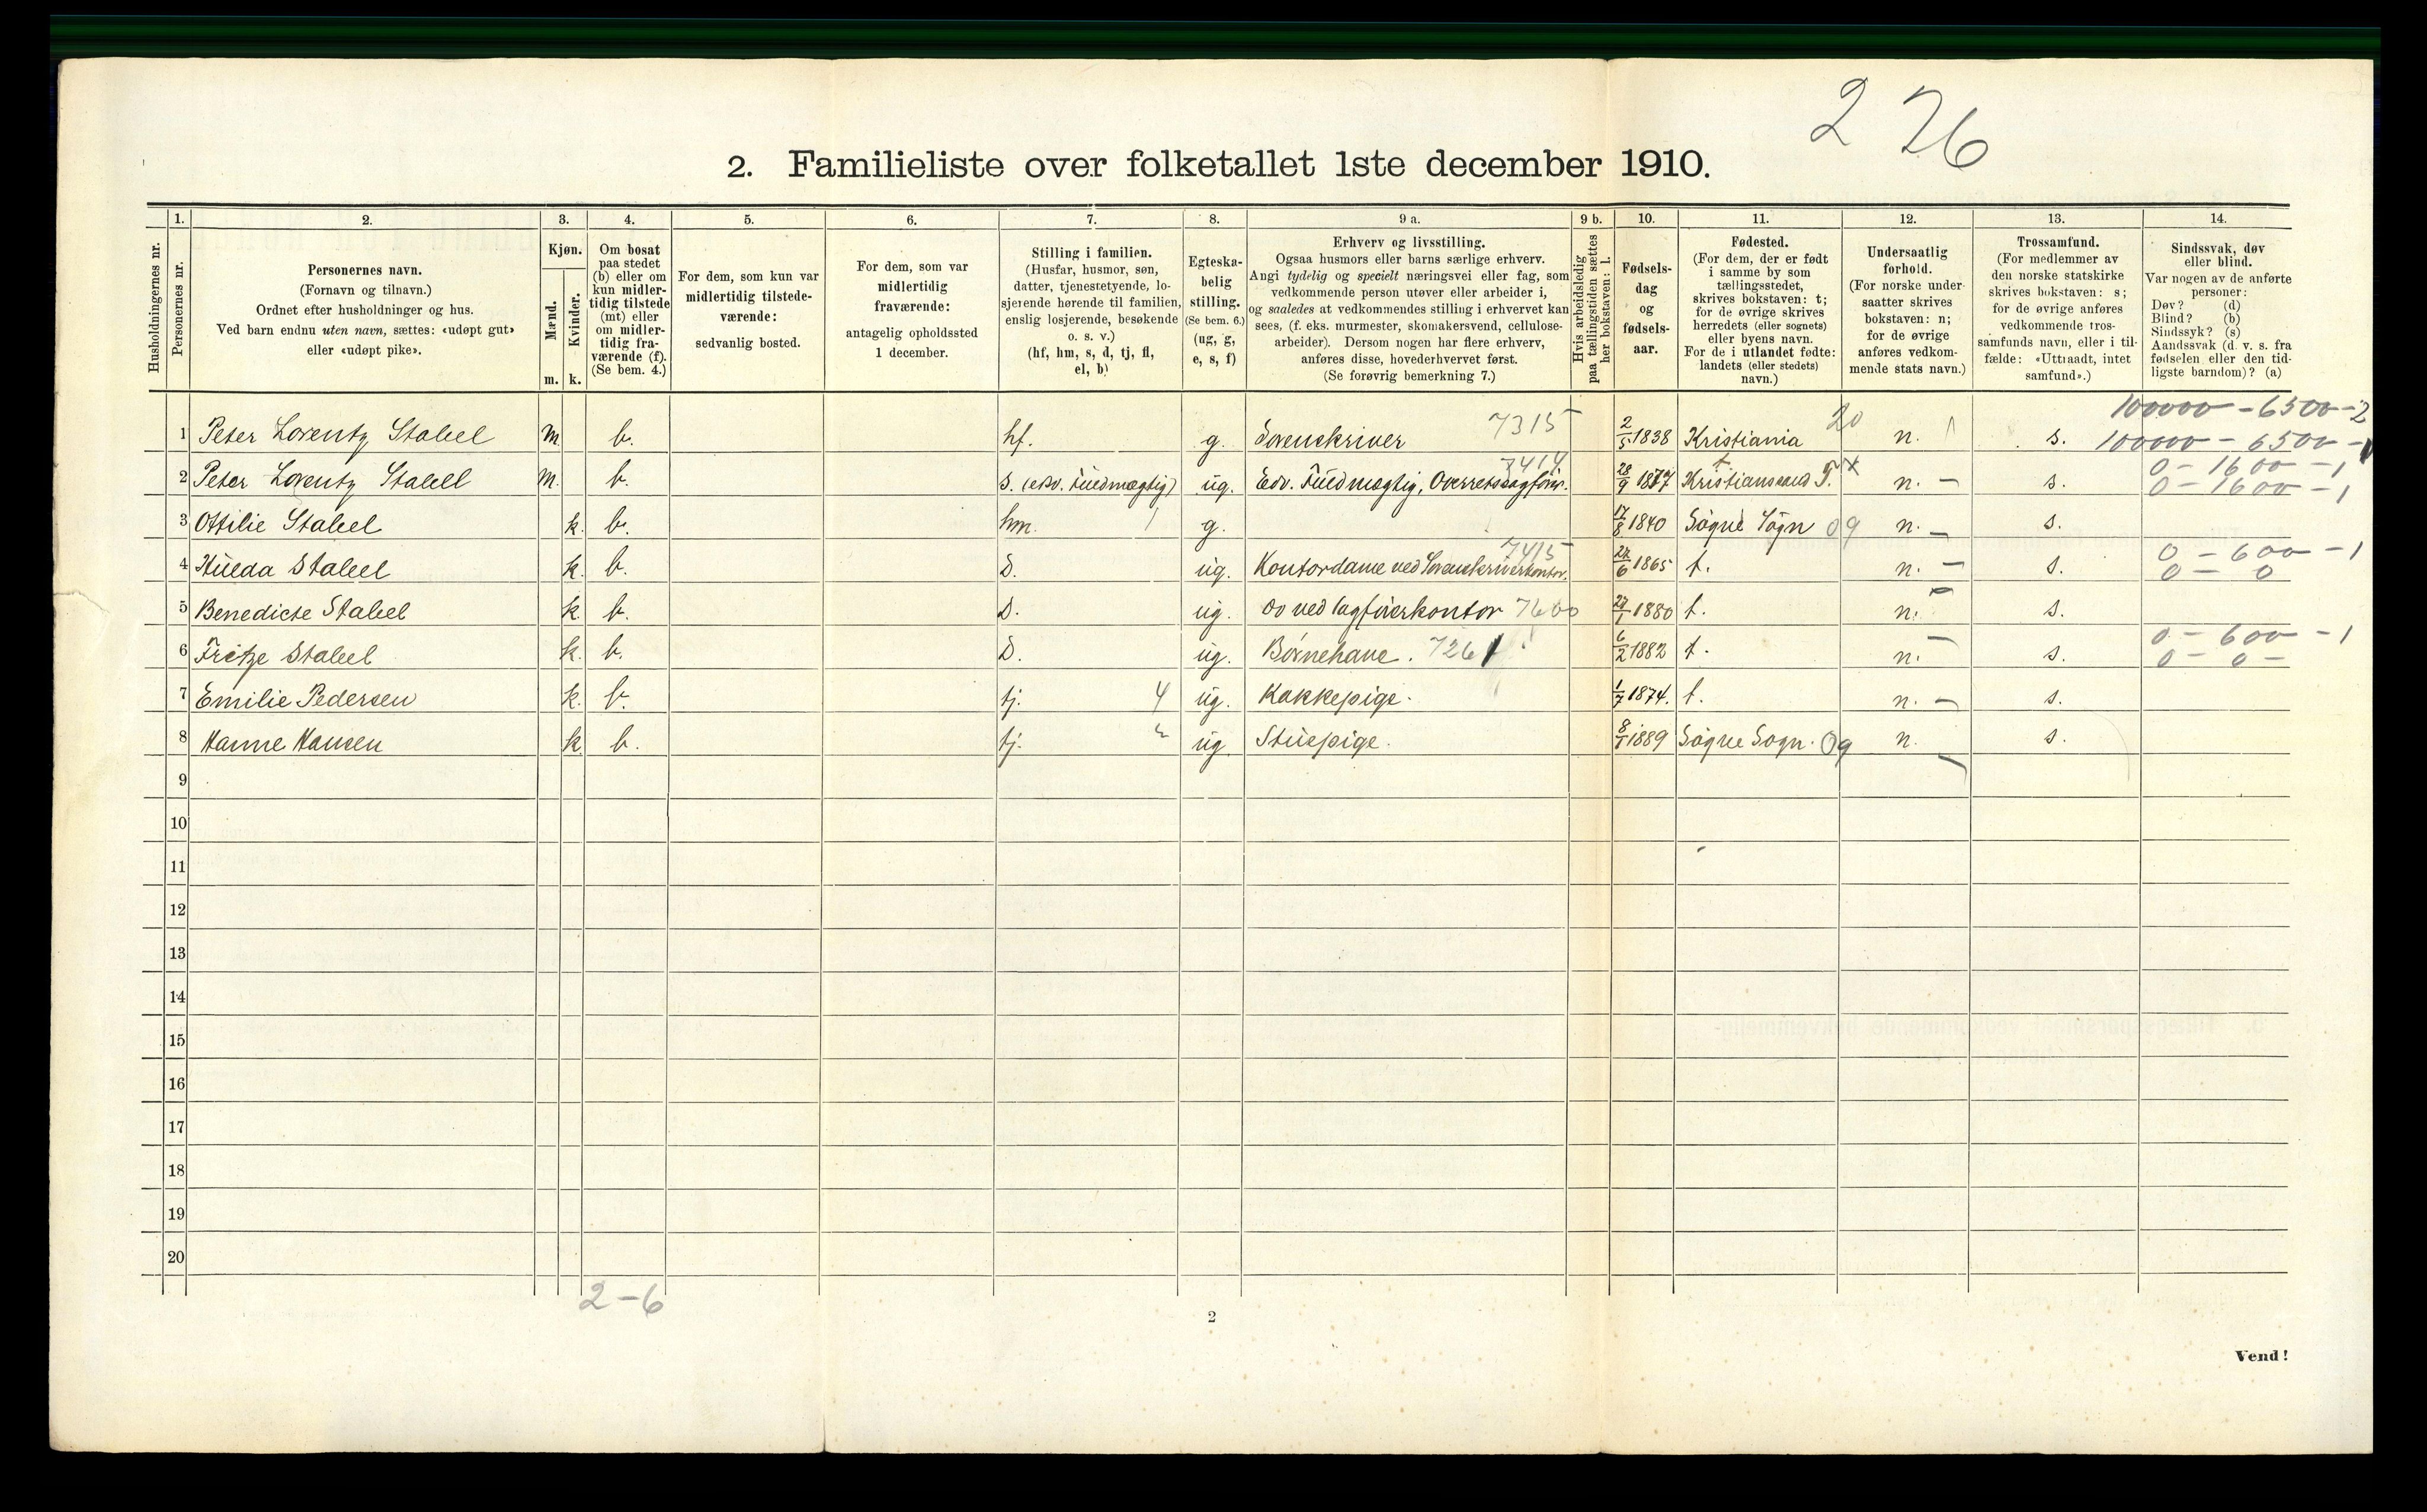 2 26
2. Familieliste over folketallet 1ste december 1910.
Husholdningernes nr.
1. Personernes nr.
2. Personernes navn.
(Fornavn og tilnavn.)
Ordnet efter husholdninger og hus.
Ved barn endnu uten navn, sættes: «udøpt gut»
eller «udøpt pike».
3. Kjøn.
Mænd. m.
Kvinder. k.
4. Om bosat
paa stedet
(b) eller om
kun midler-
tidig tilstede
(mt) eller
om midler-
tidig fra-
værende (f).
(Se bem. 4.)
5. For dem, som kun var
midlertidig tilstede-
værende:
sedvanlig bosted.
6. For dem, som var
midlertidig
fraværende:
antagelig opholdssted
1 december.
7. Stilling i familien.
(Husfar, husmor, søn,
datter, tjenestetyende, lo-
sjerende hørende til familien,
enslig losjerende, besøkende
o. s. v.)
(hf, hm, s, d, tj, fl,
el, b)
8. Egteska-
belig
stilling.
(Se bem. 6.)
(ug, g,
e, s, f)
9 a. Erhverv og livsstilling.
Ogsaa husmors eller barns særlige erhverv.
Angi tydelig og specielt næringsvei eller fag, som
vedkommende person utøver eller arbeider i,
og saaledes at vedkommendes stilling i erhvervet kan
sees, (f. eks. murmester, skomakersvend, cellulose-
arbeider). Dersom nogen har flere erhverv,
anføres disse, hovederhvervet først.
(Se forøvrig bemerkning 7.)
9 b. Hvis arbeidsledig
paa tællingstiden sættes
her bokstaven: l.
10. Fødsels-
dag
og
fødsels-
aar.
11. Fødested.
(For dem, der er født
i samme by som
tællingsstedet,
skrives bokstaven: t;
for de øvrige skrives
herredets (eller sognets)
eller byens navn.
For de i utlandet fødte:
landets (eller stedets)
navn.)
12. Undersaatlig
forhold.
(For norske under-
saatter skrives
bokstaven: n;
for de øvrige
anføres vedkom-
mende stats navn.)
13. Trossamfund.
(For medlemmer av
den norske statskirke
skrives bokstaven: s;
for de øvrige anføres
vedkommende tros-
samfunds navn, eller i til-
fælde: «Uttraadt, intet
samfund».)
14. Sindssvak, døv
eller blind.
Var nogen av de anførte
personer:
Døv? (d)
Blind? (b)
Sindssyk? (s)
Aandssvak (d. v. s. fra
fødselen eller den tid-
ligste barndom)? (a)
100000 - 6500 - 2
1 Peter Lorentz Stabel m. b. hf. g. Sorenskriver 7315 2/5 1838 Kristiania 20 n. s. 100000 - 6500 - 1
7414 t 0 - 1600 - 1
2 Peter Lorentz Stabell m. b. s. (edv. Fuldmægtig) ug. Edv. Fuldmægtig, Overretssagfører. 28/9 1877 Kristianssand T. x n. - s. 0 - 1600 - 1
3 Ottilie Stabel k. b. hm. 1 g. 17/8 1840 Søgne Sogn 09 n. - s.
7415 0 - 600 - 1
4 Hulda Stabel k. b. D. ug. Kontordame ved Sorenskriverkontor. 1865 t. n. - s. 0 - 0
5 Benedicte Stabel k. b. D. ug. do ved sagførerkontor 7600 1880 t. n. - s.
0 - 600 - 1
6 Fritze Stabel k. b. D. ug. Børnehave. 7261 6/2 1882 t. n. - s. 0 - 0 -
7 Emilie Pedersen k. b. tj. 4 ug. Kokkepige. 1/7 1874. t. n. - s.
8 Hanne Hansen k b. tj. ug. Stuepige. 1889 Søgne Sogn. 09 n. s.
9
10
11
12
13
14
15
16
17
18
19
20
2 - 6
2
Vend!